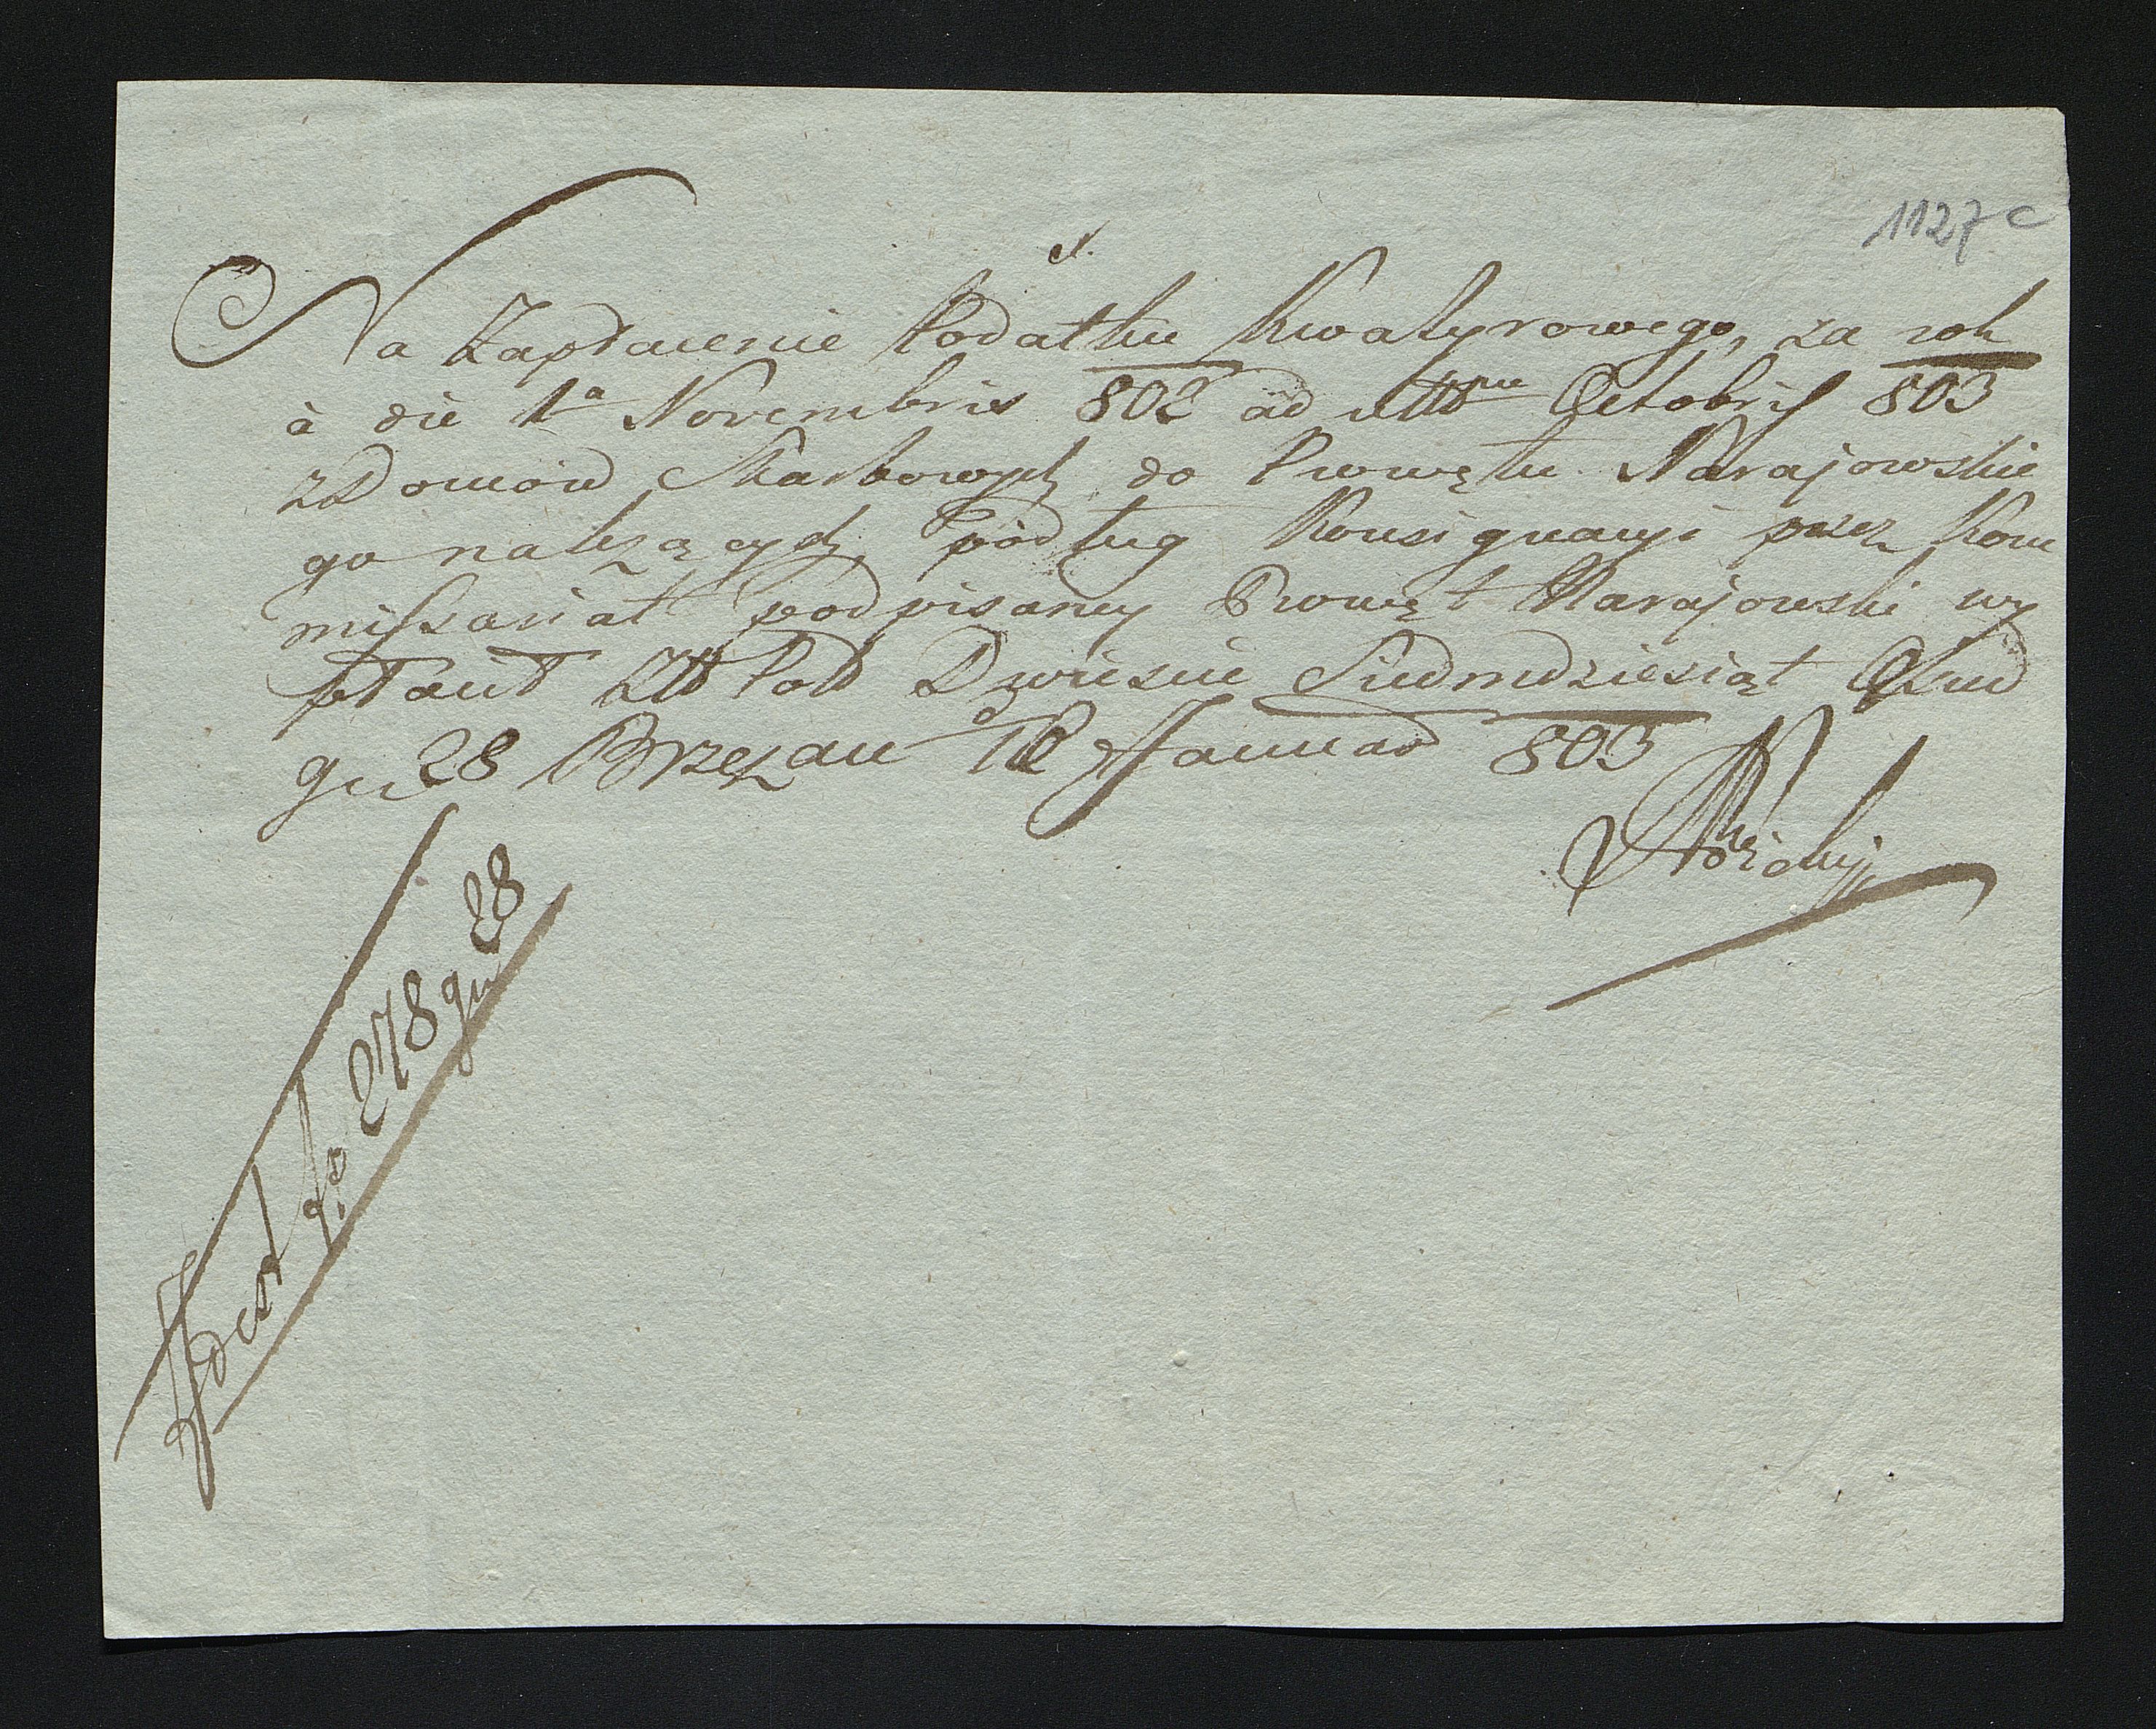 1127 c
Na Zapłacenie Podatku Kwatyrowego, za rok
à die 1a Novembris 802 ad ult Octobris 803
z Domów Skarbowych do Prowętu Narajowskie
go należących, podług Konsignacyi przez Kom
missariat podpisaney Prowęt Narajowski wy
płacił Złł Poll Dwieście Siedmdziesiąt Ośm
gr 28 Brzeżan Januar 803
Jest fl 278 gr 28